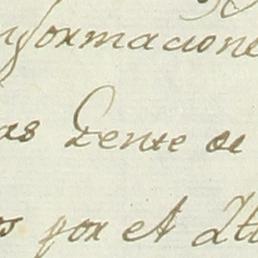 nformacione
as Gente de
por el